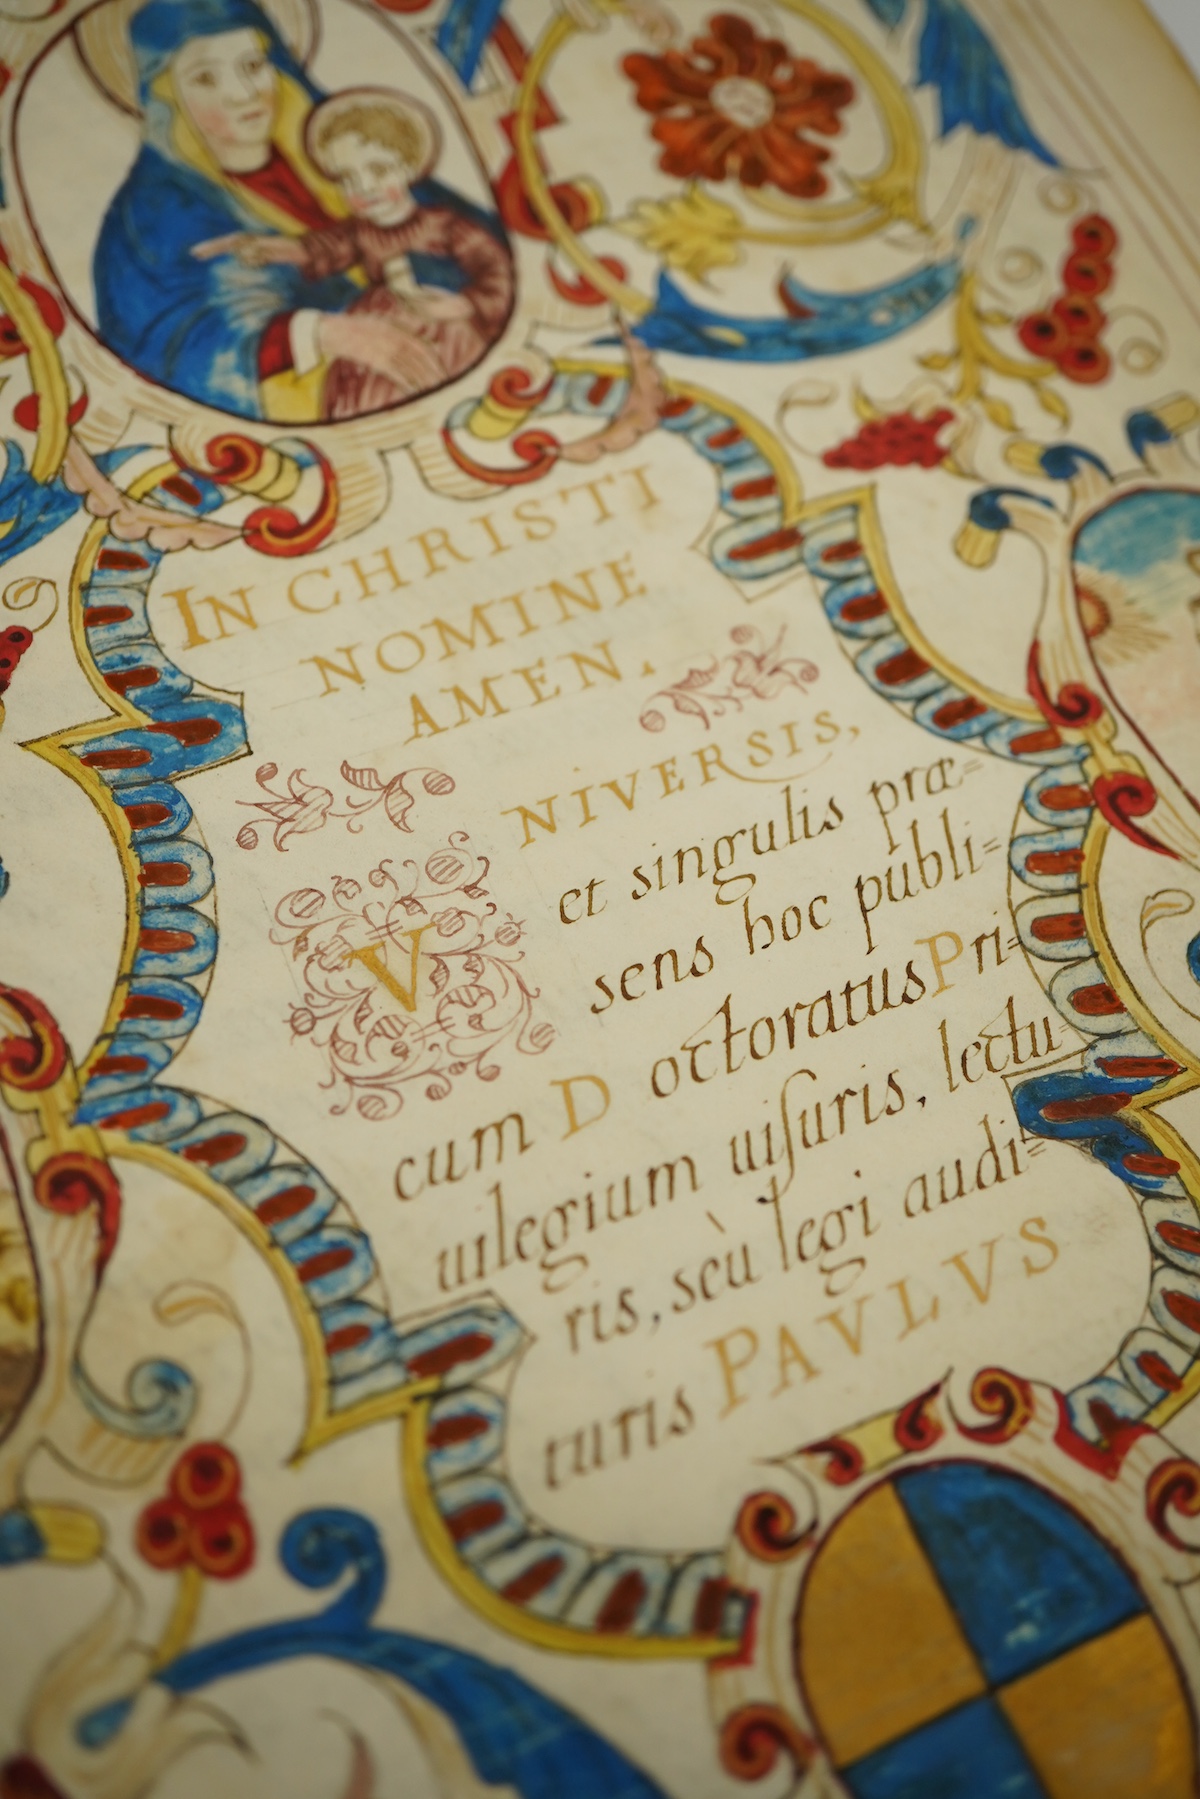 IN CHRISTI
NOMINE
AMEN.
VNIVERSIS,
et singulis præ=
sens hoc publi=
cum Doctoratus Pri=
uilegium uiſuris, lectu=
ris, seù legi audi=
turis PAVLVS